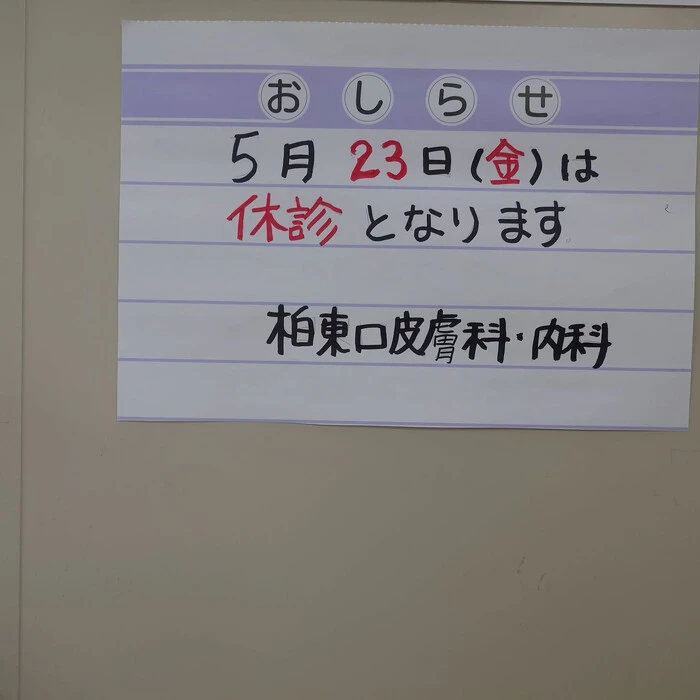 おしらせ
5月23日(金)は
休診となります
柏東口皮膚科・内科